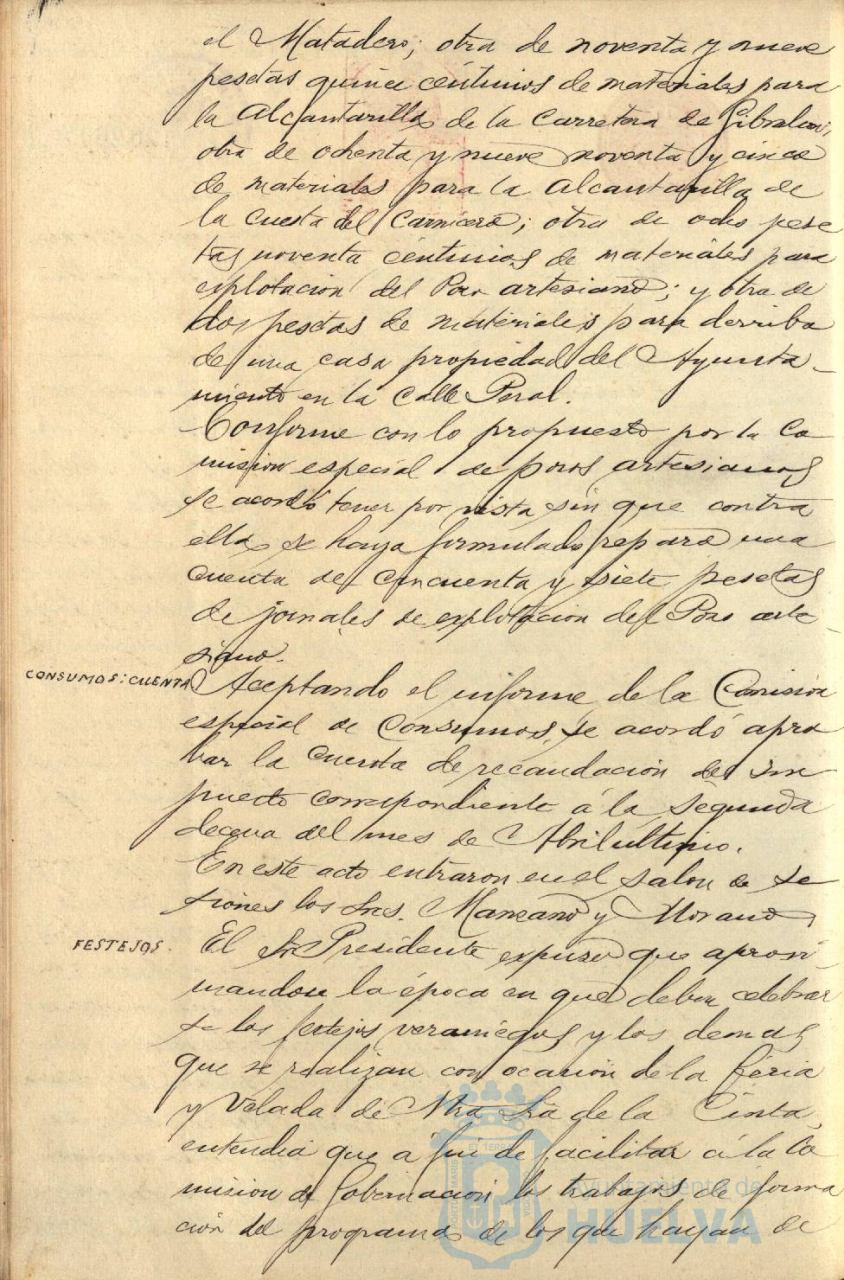 el Matadero; otra de noventa y nueve
pesetas quince céntimos de materiales para
la Alcantarilla de la Carretera de Gibraleon;
otra de ochenta y nueve noventa y cinco
de materiales para la Alcantarilla de
la Cuesta del Carnicero; otra de ocho pese
tas noventa céntimos de materiales para
esplotacion del Pozo artesiano; y otra de
dos pesetas de materiales para derribo
de una casa propiedad del Ayunta-
miento en la Calle Peral.
Conforme con lo propuesto por la Co
mision especial de pozos artesianos
se acordó tener por vista sin que contra
ella se haya formulado reparo una
cuenta de cincuenta y siete pesetas
de jornales de esplotacion del Pozo arte-
siano.
CONSUMOS: CUENTA
Aceptando el informe de la Comisión
especial de Consumos, se acordó apro
bar la cuenta de recaudación del im
puesto correspondiente á la segunda
decena del mes de Abril último.
En este acto entraron en el salon de se
siones los Sres. Manzano y Morano,
FESTEJOS.
El Sr. Presidente expuso que aproxi-
mandose la época en que deben celebrar
se los festejos veraniegos y los demas
que se realizan con ocasión de la feria
y Velada de Ntra Sra de la Cinta,
entendia que a fin de facilitar á la Co
mision de Gobernación los trabajos de forma
ción del programa de los que hayan de
Ayuntamiento de
HUELVA